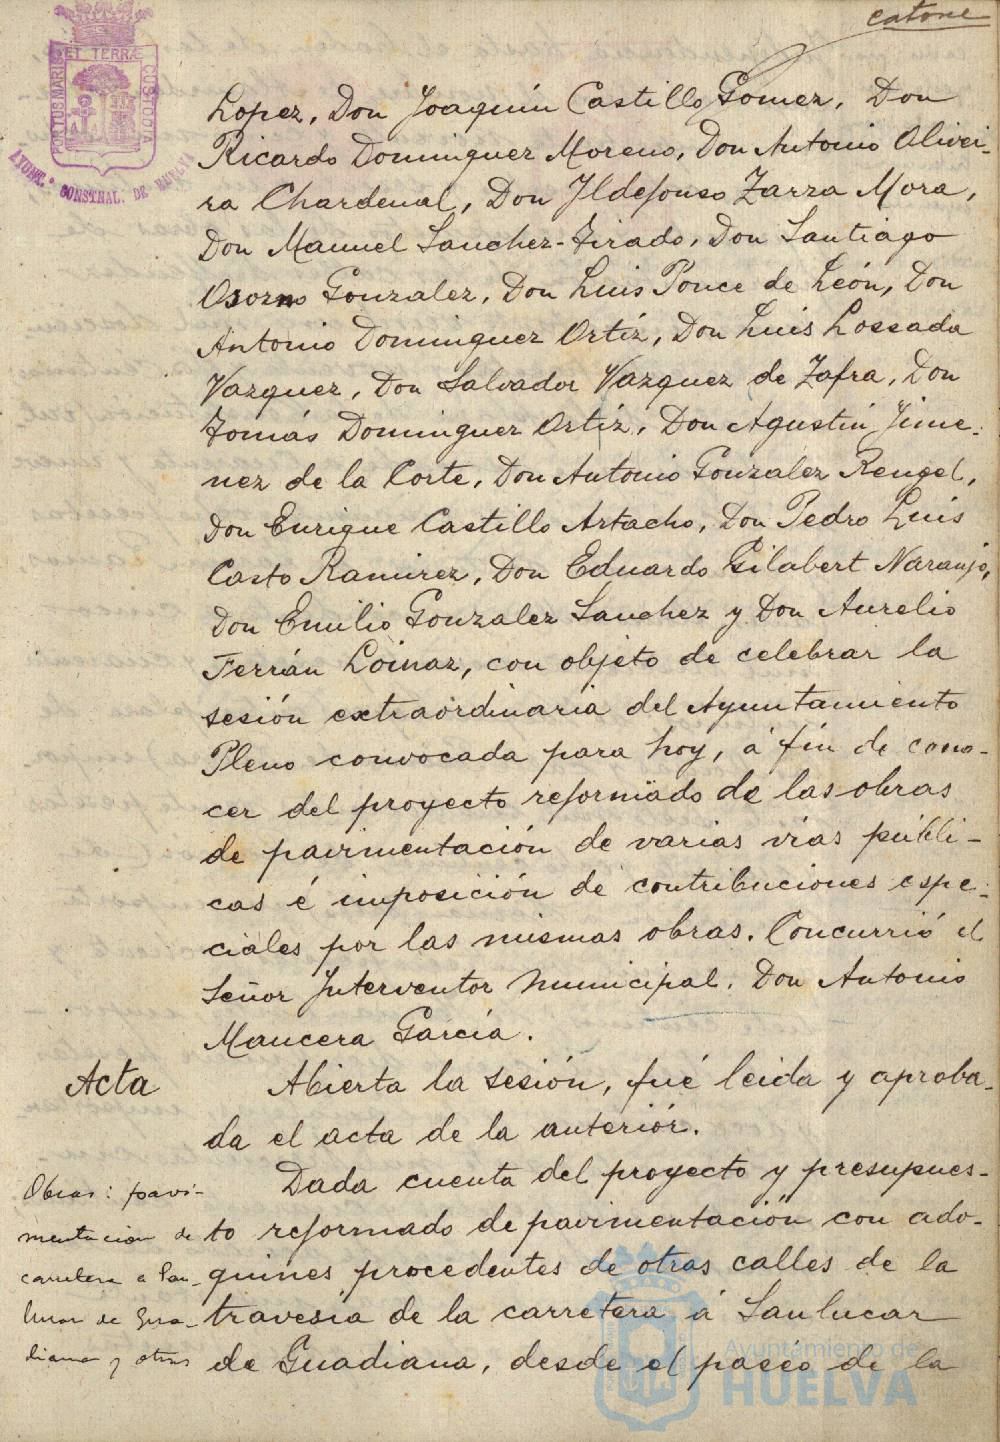 catorce
PORTUS MARIS ET TERRÆ CUSTODIA
AYUNT.º CONSTNAL. DE HUELVA
Lopez, Don Joaquin Castillo Gomez, Don
Ricardo Dominguez Moreno, Don Antonio Olivei-
ra Chardenal, Don Ildefonso Zarza Mora,
Don Manuel Sanchez-Tirado, Don Santiago
Osorno Gonzalez, Don Luis Ponce de León, Don
Antonio Dominguez Ortiz, Don Luis Lossada
Vazquez, Don Salvador Vazquez de Zafra, Don
Tomás Dominguez Ortiz, Don Agustin Jime-
nez de la Corte, Don Antonio Gonzalez Rengel,
Don Enrique Castillo Artacho, Don Pedro Luis
Casto Ramirez, Don Eduardo Gilabert Naranjo,
Don Emilio Gonzalez Sanchez y Don Aurelio
Ferrán Loinaz, con objeto de celebrar la
sesión extraordinaria del Ayuntamiento
Pleno convocada para hoy, á fin de cono-
cer del proyecto reformado de las obras
de pavimentación de varias vias públi-
cas é imposición de contribuciones espe-
ciales por las mismas obras. Concurrió el
Señor Interventor Municipal, Don Antonio
Mancera García.
Acta
Abierta la sesión, fué leida y aproba-
da el acta de la anteriór.
Obras: pavi-
mentacion de
carretera a San-
lucar de Gua-
diana y otras
Dada cuenta del proyecto y presupues-
to reformado de pavimentación con ado-
quines procedentes de otras calles de la
travesia de la carretera á Sanlucar
de Guadiana, desde el paseo de la
Ayuntamiento de
HUELVA